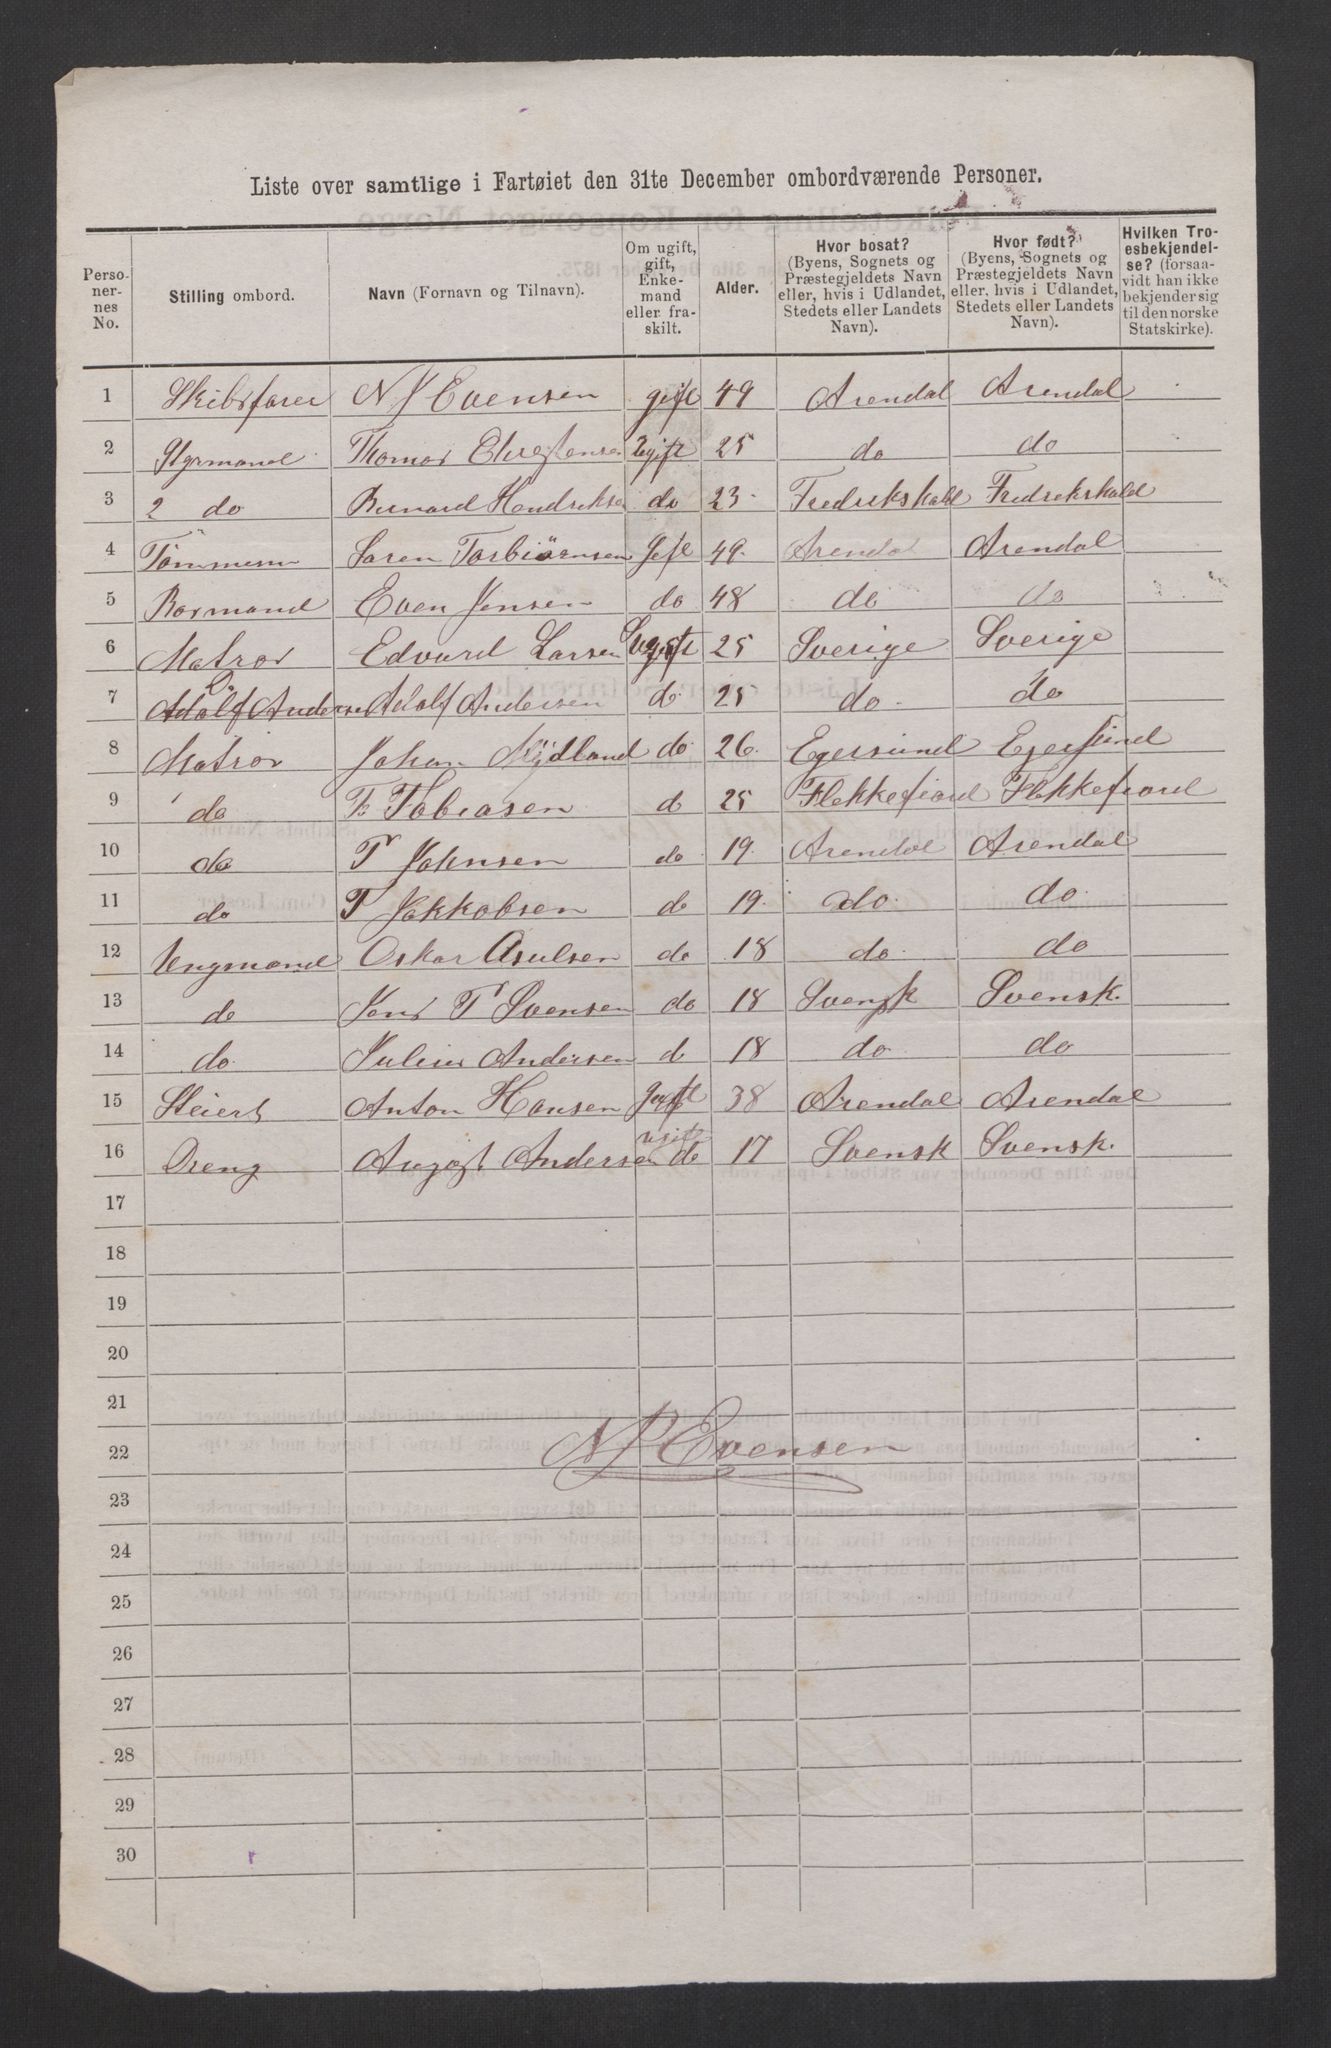 Liste over samtlige i Fartøiet den 31te December ombordværende Personer.
Perso-nernes No. | Stilling ombord. | Navn (Fornavn og Tilnavn). | Om ugift, gift, Enkemand eller fraskilt. | Alder. | Hvor bosat? (Byens, Sognets og Præstegjeldets Navn eller, hvis i Udlandet, Stedets eller Landets Navn). | Hvor født? (Byens, Sognets og Præstegjeldets Navn eller, hvis i Udlandet, Stedets eller Landets Navn). | Hvilken Troesbekjendelse? (forsaavidt han ikke bekjender sig til den norske Statskirke).
1 Skibsfører N J Evensen gift 49 Arendal Arendal
2 Styrmand Thomas Chrestensen Ugift 25 do do
3 2 do Bernard Hendriksen do 23 Fredrikshald Fredrikshald
4 Tömmerm Søren Torbiörnsen Gift 49 Arendal Arendal
5 Bosmand Even Jensen do 48 do do
6 Matros Edvard Larsen Ugift 25 Sverige Sverige
7 Do Adolf Andersen Adolf Andersen do 25 do do
8 Matros Johan Mydland do 26 Egersund Egersund
9 do F Tobiasen do 25 Flekkefiord Flekkefiord
10 do T Johnsen do 19 Arendal Arendal
11 do T Jakkobsen do 19 do do
12 Ungmand Oskar Asulsen do 18 do do
13 do Jens T Svensen do 18 Svensk Svensk.
14 do Julius Andersen do 18 do do
15 Steiert Anton Hansen Gift 38 Arendal Arendal
16 Dreng August Andersen ugift do 17 Svensk Svensk.
17
18
19
20
21
22 Evensen
23
24
25
26
27
28
29
30